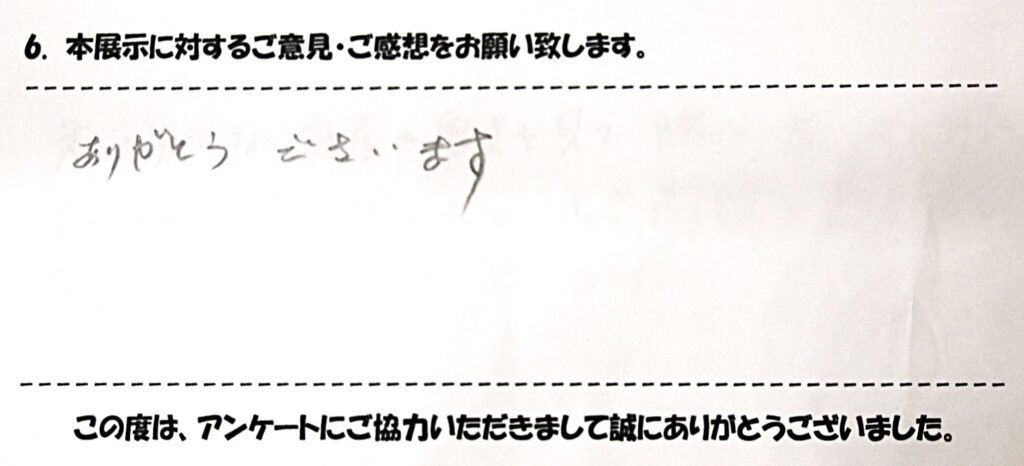 6. 本展示に対するご意見・ご感想をお願い致します。
ありがとう ございます
この度は、アンケートにご協力いただきまして誠にありがとうございました。